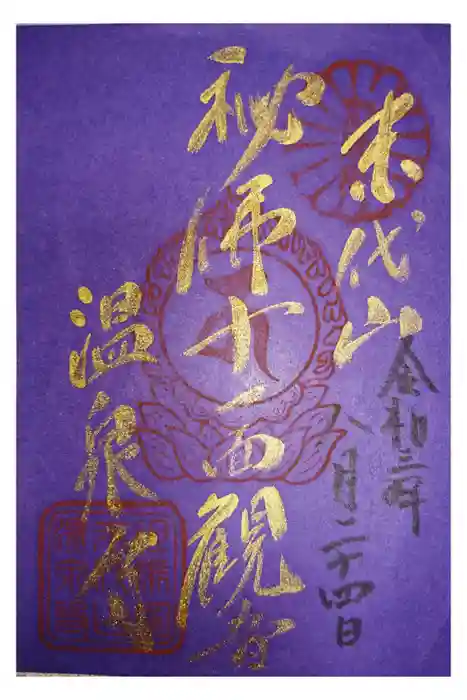 末代山
令和三年
八月二十四日
秘佛十一面観音
温泉寺